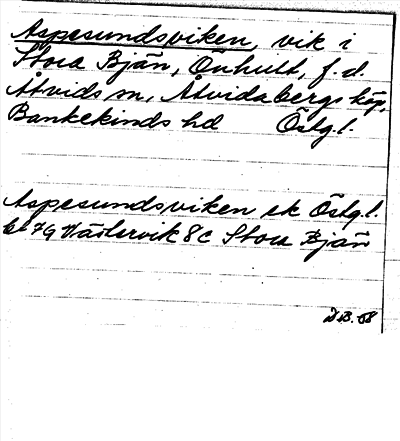 Aspesundsviken, vik i
Stora Bjän, Önhult, f.d.
Åtvids sn, Åtvidabergs köp,
Bankekinds hd Östg.l.
Aspesundsviken ek Östg.l.
bl 79 Västervik 8c Stora Bjän
D.B. 58